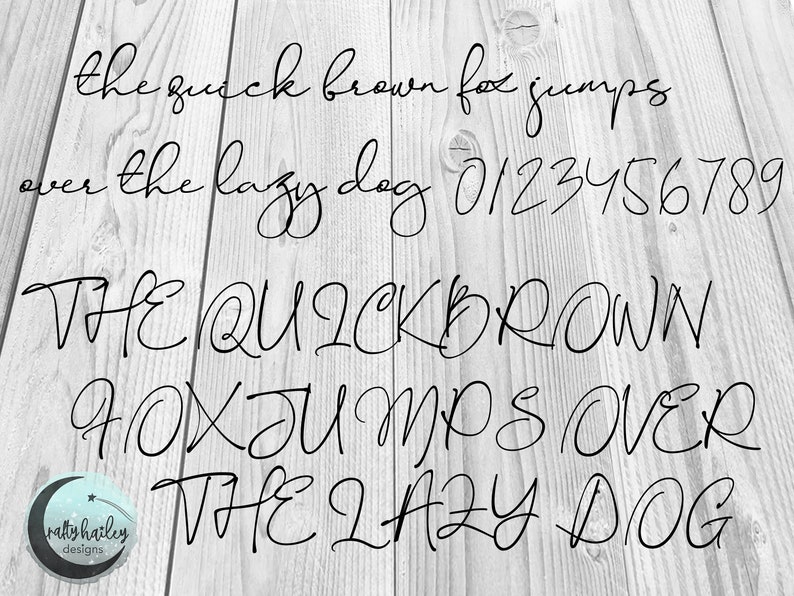 the quick brown fox jumps
over the lazy dog 0123456789
THE QUICK BROWN
FOX JUMPS OVER
THE LAZY DOG
craftyhailey
designs